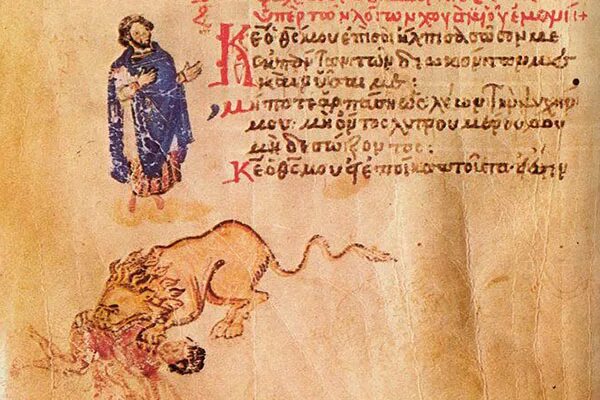 ὑπὲρ τῶν λόγων χουσὶ υἱοῦ ϊεμενεὶ +
Κε ὁ θς μου ἐπὶ σοὶ ἤλπισα σῶσον με
ἐκ πάντων τῶν διωκόντων με
καὶ ῥῦσαι με:
μήποτε ἁρπάση ὡς λέων τὴν ψυχήν
μου. μὴ ὄντος λυτρουμένου
μηδὲ σώζοντος:
Κε ὁ θς μου εἰ ἐποίησα τοῦτο. εἰ